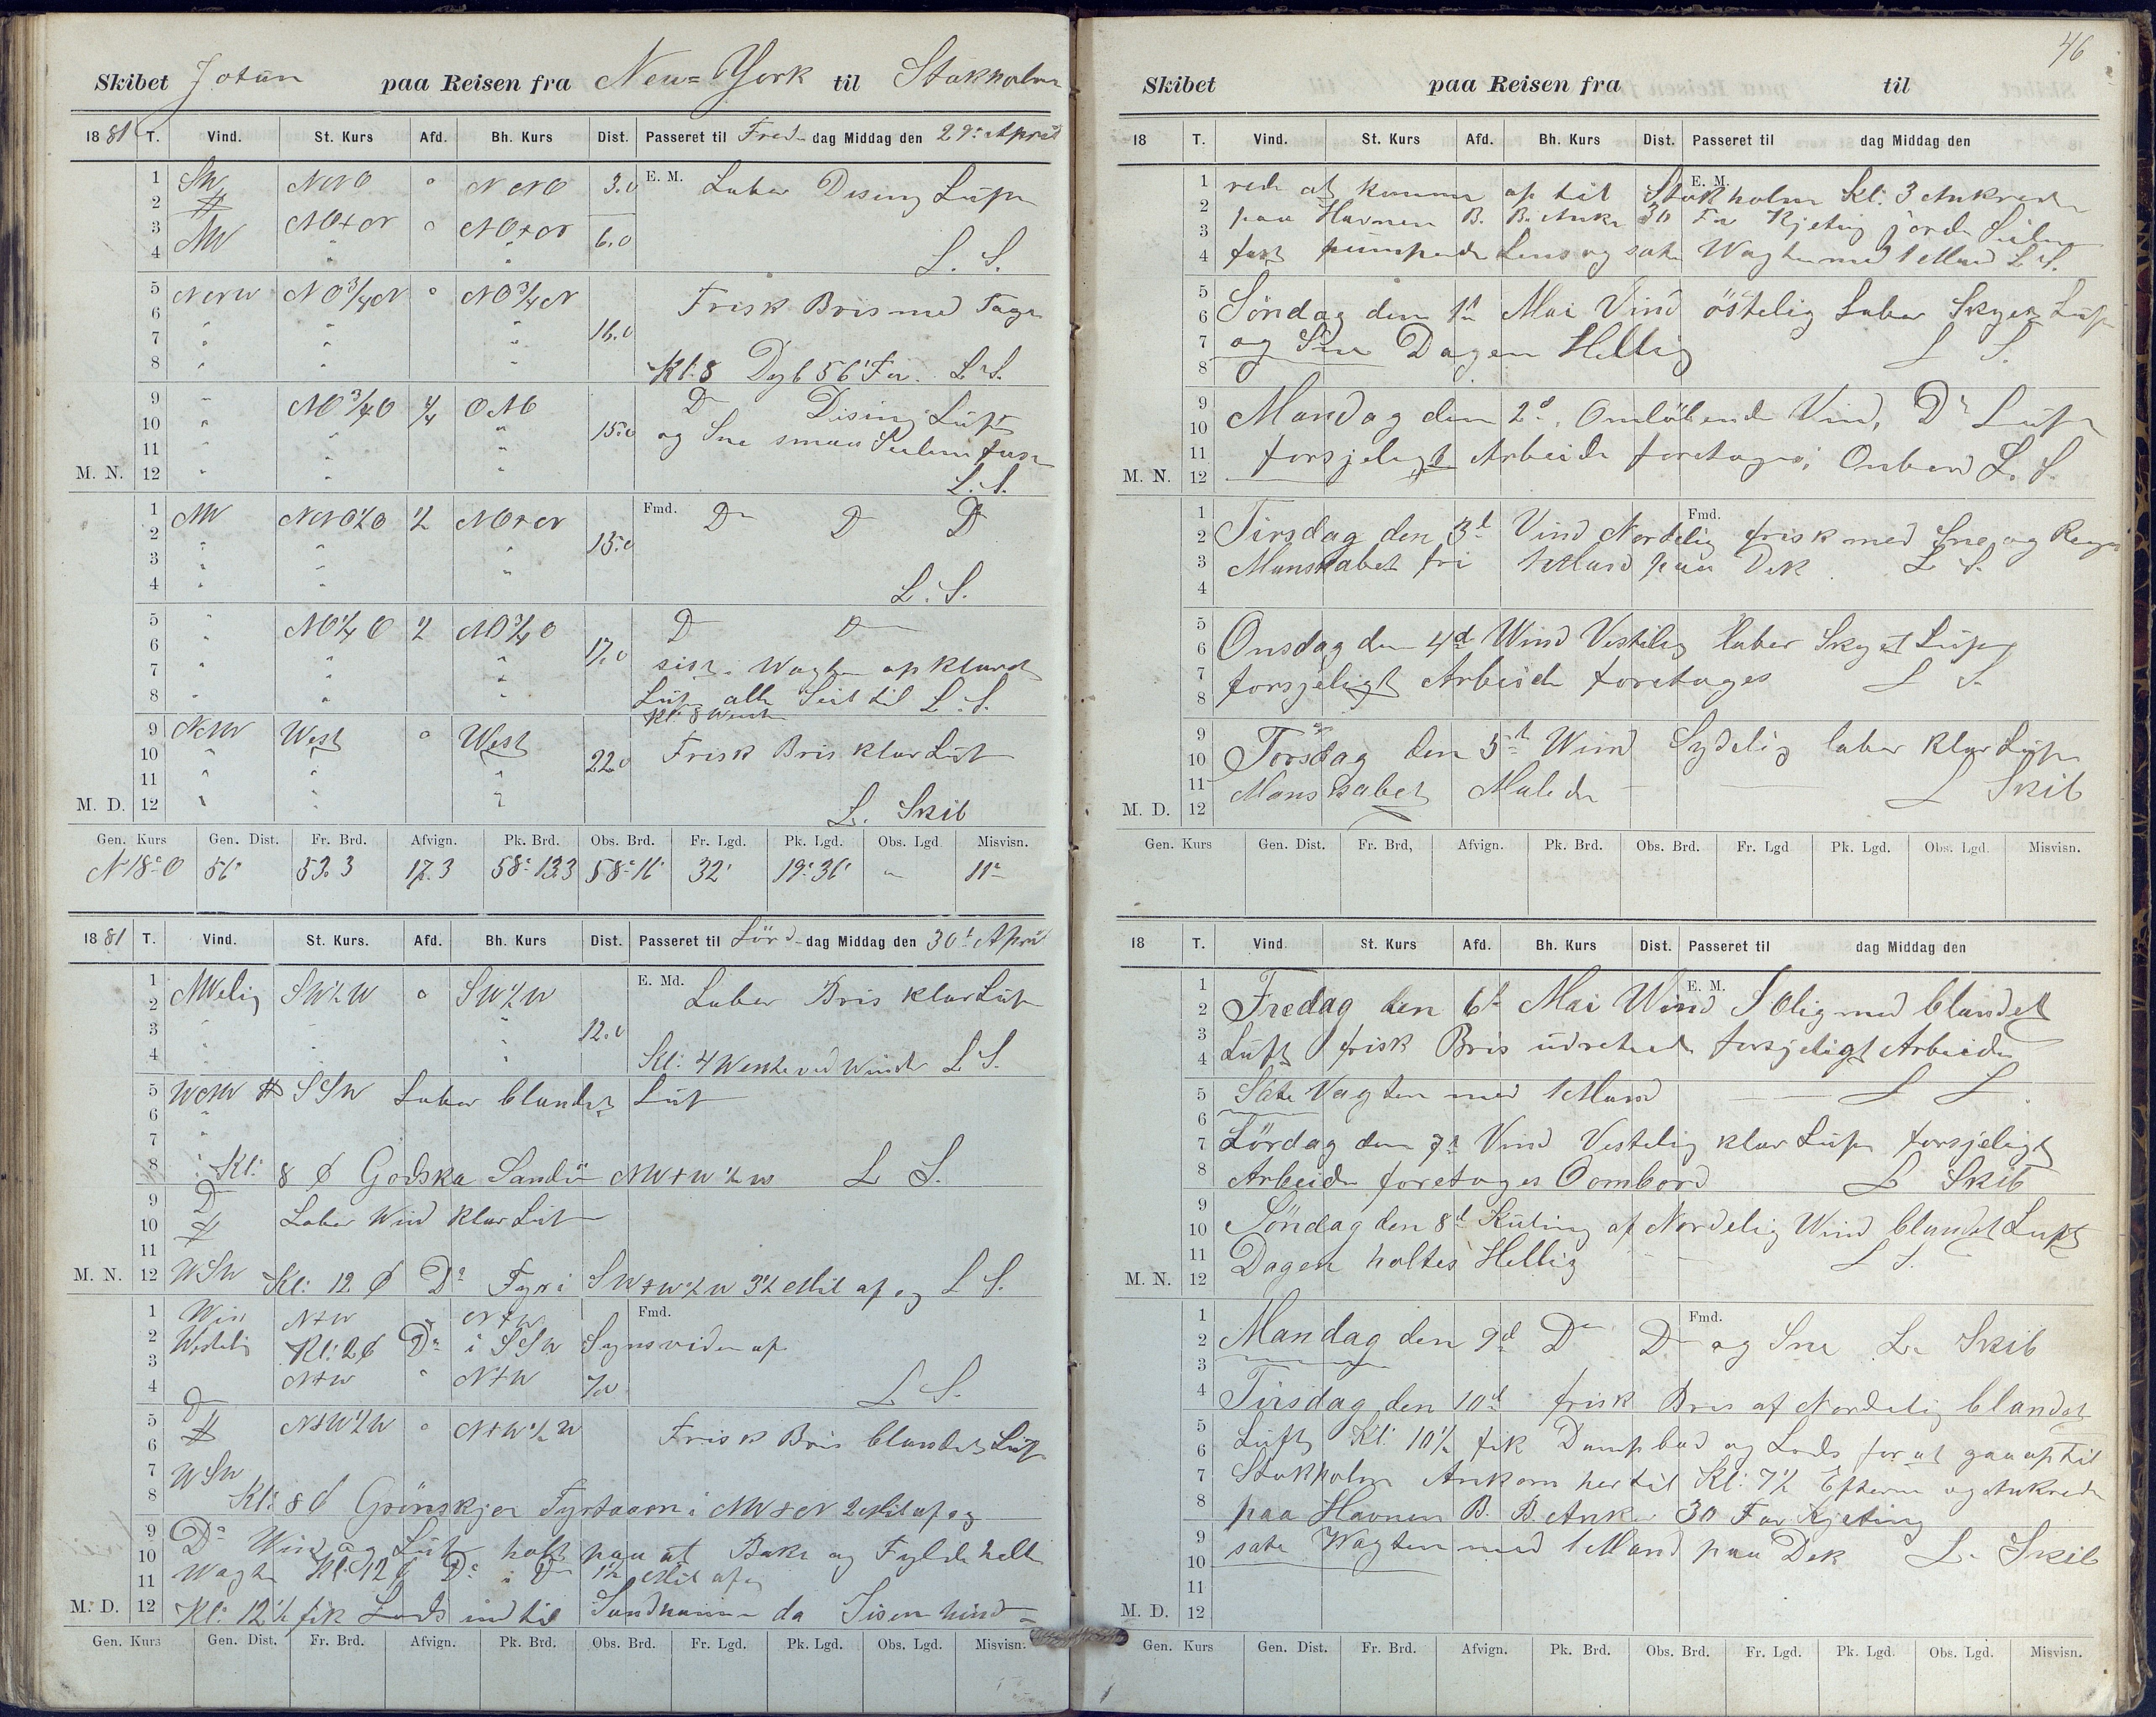 Skibet Jotun paa Reisen fra New=York til Stokholm
1881 T. Vind. St. Kurs Afd. Bh. Kurs Dist. Passeret til Fre dag Middag den 29: April
1 SW NNO o NNO 3.0 E. M. Laber Disig Luft
2
3 NW NO+N o NO+N 6.0
4 " " L. S.
5 NNW NO 3/4 N o NO 3/4 N Frisk Bris med Tage
6 " " "
7 " " " 16.0
8 " " " Kl: 8 Dyb 56 Fv. L. S.
9 " NO 3/4 O 1/4 ONO Do Disig Luft
10 " " " 15.0 og Sne smaa Seilene fast
11 " "
M. N. 12 " " " L. S.
1 NW NNO 1/2 O 1/2 NO+N Fmd. Do Do Do
2 " " " 13.0
3 " " "
4 " " L. S.
5 " NO 1/4 O 1/2 NO 3/4 O Do Do
6 " " " 17.0
7 " " " sist i Wagten opklaret
8 " " " Luft alle Seil til L. S.
Kl: 8 Wendte
9 NNW West o West Frisk Bris klar Luft
10 " " " 22.0
11 " " "
M. D. 12 " " " L. Skib
Gen. Kurs Gen. Dist. Fr. Brd. Afvign. Pk. Brd. Obs. Brd. Fr. Lgd. Pk. Lgd. Obs. Lgd. Misvisn.
N 18° O 56' 53.3 17.3 58° 13.3 58° 16' 32' 19° 36' " 11°
1881 T. Vind. St. Kurs. Afd. Bh. Kurs Dist. Passeret til Lör dag Middag den 30t April
1 NWelig SW 1/2 W o SW 1/2 W E. Md. Laber Bris klar Luft
2
3 " " " 12.0
4 " " " Kl: 4 Wendte ved Winde L. S.
5 WNW SSW Laber blandet Luft
6 "
7 "
8 " Kl: 8 Godska Sandö NW+W 1/2 W L. S.
9 Do
10 Laber Wind klar Luft
11
M. N. 12 WSW Kl: 12 Do Fyr i SW+W 1/2 W 3 1/2 Mil af og L. S.
1 Win N+W N+W Fmd.
2 Westelig Kl: 2 Do i SSW Synsviden af
3 N+W " N+W 7.0
4 Do L. S.
5 N+W 1/2 W o N+W 1/2 W Frisk Bris blandet Luft
6
7 WSW
8 Kl: 8 Grönskjer Fyrtaarn i NW+N 2 Mil af og
9 Do Wind og Luft holt paa at Bake og Fylde hele
10 Wagten Kl: 12 Do i Do 1 1/2 Mil af
11
M. D. 12 Kl: 12 1/2 fik Lods ind til Sandhamn da Isen hind-
Gen. Kurs Gen. Dist. Fr. Brd. Afvign. Pk. Brd. Obs. Brd. Fr. Lgd. Pk. Lgd. Obs. Lgd. Misvisn.
46
Skibet paa Reisen fra til
18 T. Vind. St. Kurs Afd. Bh. Kurs Dist. Passeret til dag Middag den
E. M.
1 rede at komme op til Stokholm Kl: 3 Ankrede
2 paa Havnen B. B. Anker 30 Fv Kjeting gjorde Seilene
3
4 fast pumpede Lens og sate Wagten med 1 Mand L. S.
5
6 Söndag den 1te Mai Vind östelig Laber Skyet Luft
7 og Sne Dagen Hellig L. S.
8
9 Mandag den 2d. Omlöbende Vind, Do Luft
10
11 forsjeligt Arbeide foretages Onbord L. S.
M. N. 12
Fmd.
1
2 Tirsdag den 3d Vind Nordelig frisk med Sne og Regn
3 Manskabet fri 1 Mand paa Dek L. S.
4
5
6 Onsdag den 4de Wind Vestelig laber Skyet Luft
7 forsjeligt Arbeide foretages L. S.
8
9
10 Torsdag den 5te Wind Sydelig laber klar Luft
11 Manskabet Malede L Skib
M. D. 12
Gen. Kurs Gen. Dist. Fr. Brd, Afvign. Pk. Brd. Obs. Brd. Fr. Lgd Pk. Lgd. Obs. Lgd. Misvisn.
18 T. Vind. St. Kurs Afd. Bh. Kurs Dist. Passeret til dag Middag den
E. M.
1
2 Fredag den 6te Mai Wind SOlig med blandet
3
4 Luft frisk Bris udretede forsjeligt Arbeide
5 Sate Vagten med 1 Mand L S.
6
7 Lördag den 7de Vind Vestelig klar Luft forsjeligt
8 Arbeide foretages Oombord L. Skib
9
10 Söndag den 8d Kuling af Nordelig Wind blandet Luft
11 Dagen holtes Hellig L S.
M. N. 12
Fmd.
1
2 Mandag den 9d Do Do og Sne L. Skib
3
4 Tirsdag den 10d frisk Bris af Nordelig blandet
5 Luft Kl: 10 1/2 fik Dampbad og Lods for at gaa op til
6
7 Stokholm Ankom her til Kl: 7 1/2 Efterm og Ankrede
8 paa Havnen B. B. Anker 30 Fav Kjeting
9 sate Wagten med 1 Mand paa Dek L. Skib
10
11
M. D. 12
Gen. Kurs Gen. Dist. Fr. Brd. Afvign. Pk. Brd. Obs. Brd. Fr. Lgd. Pk. Lgd. Obs. Lgd. Misvisn.